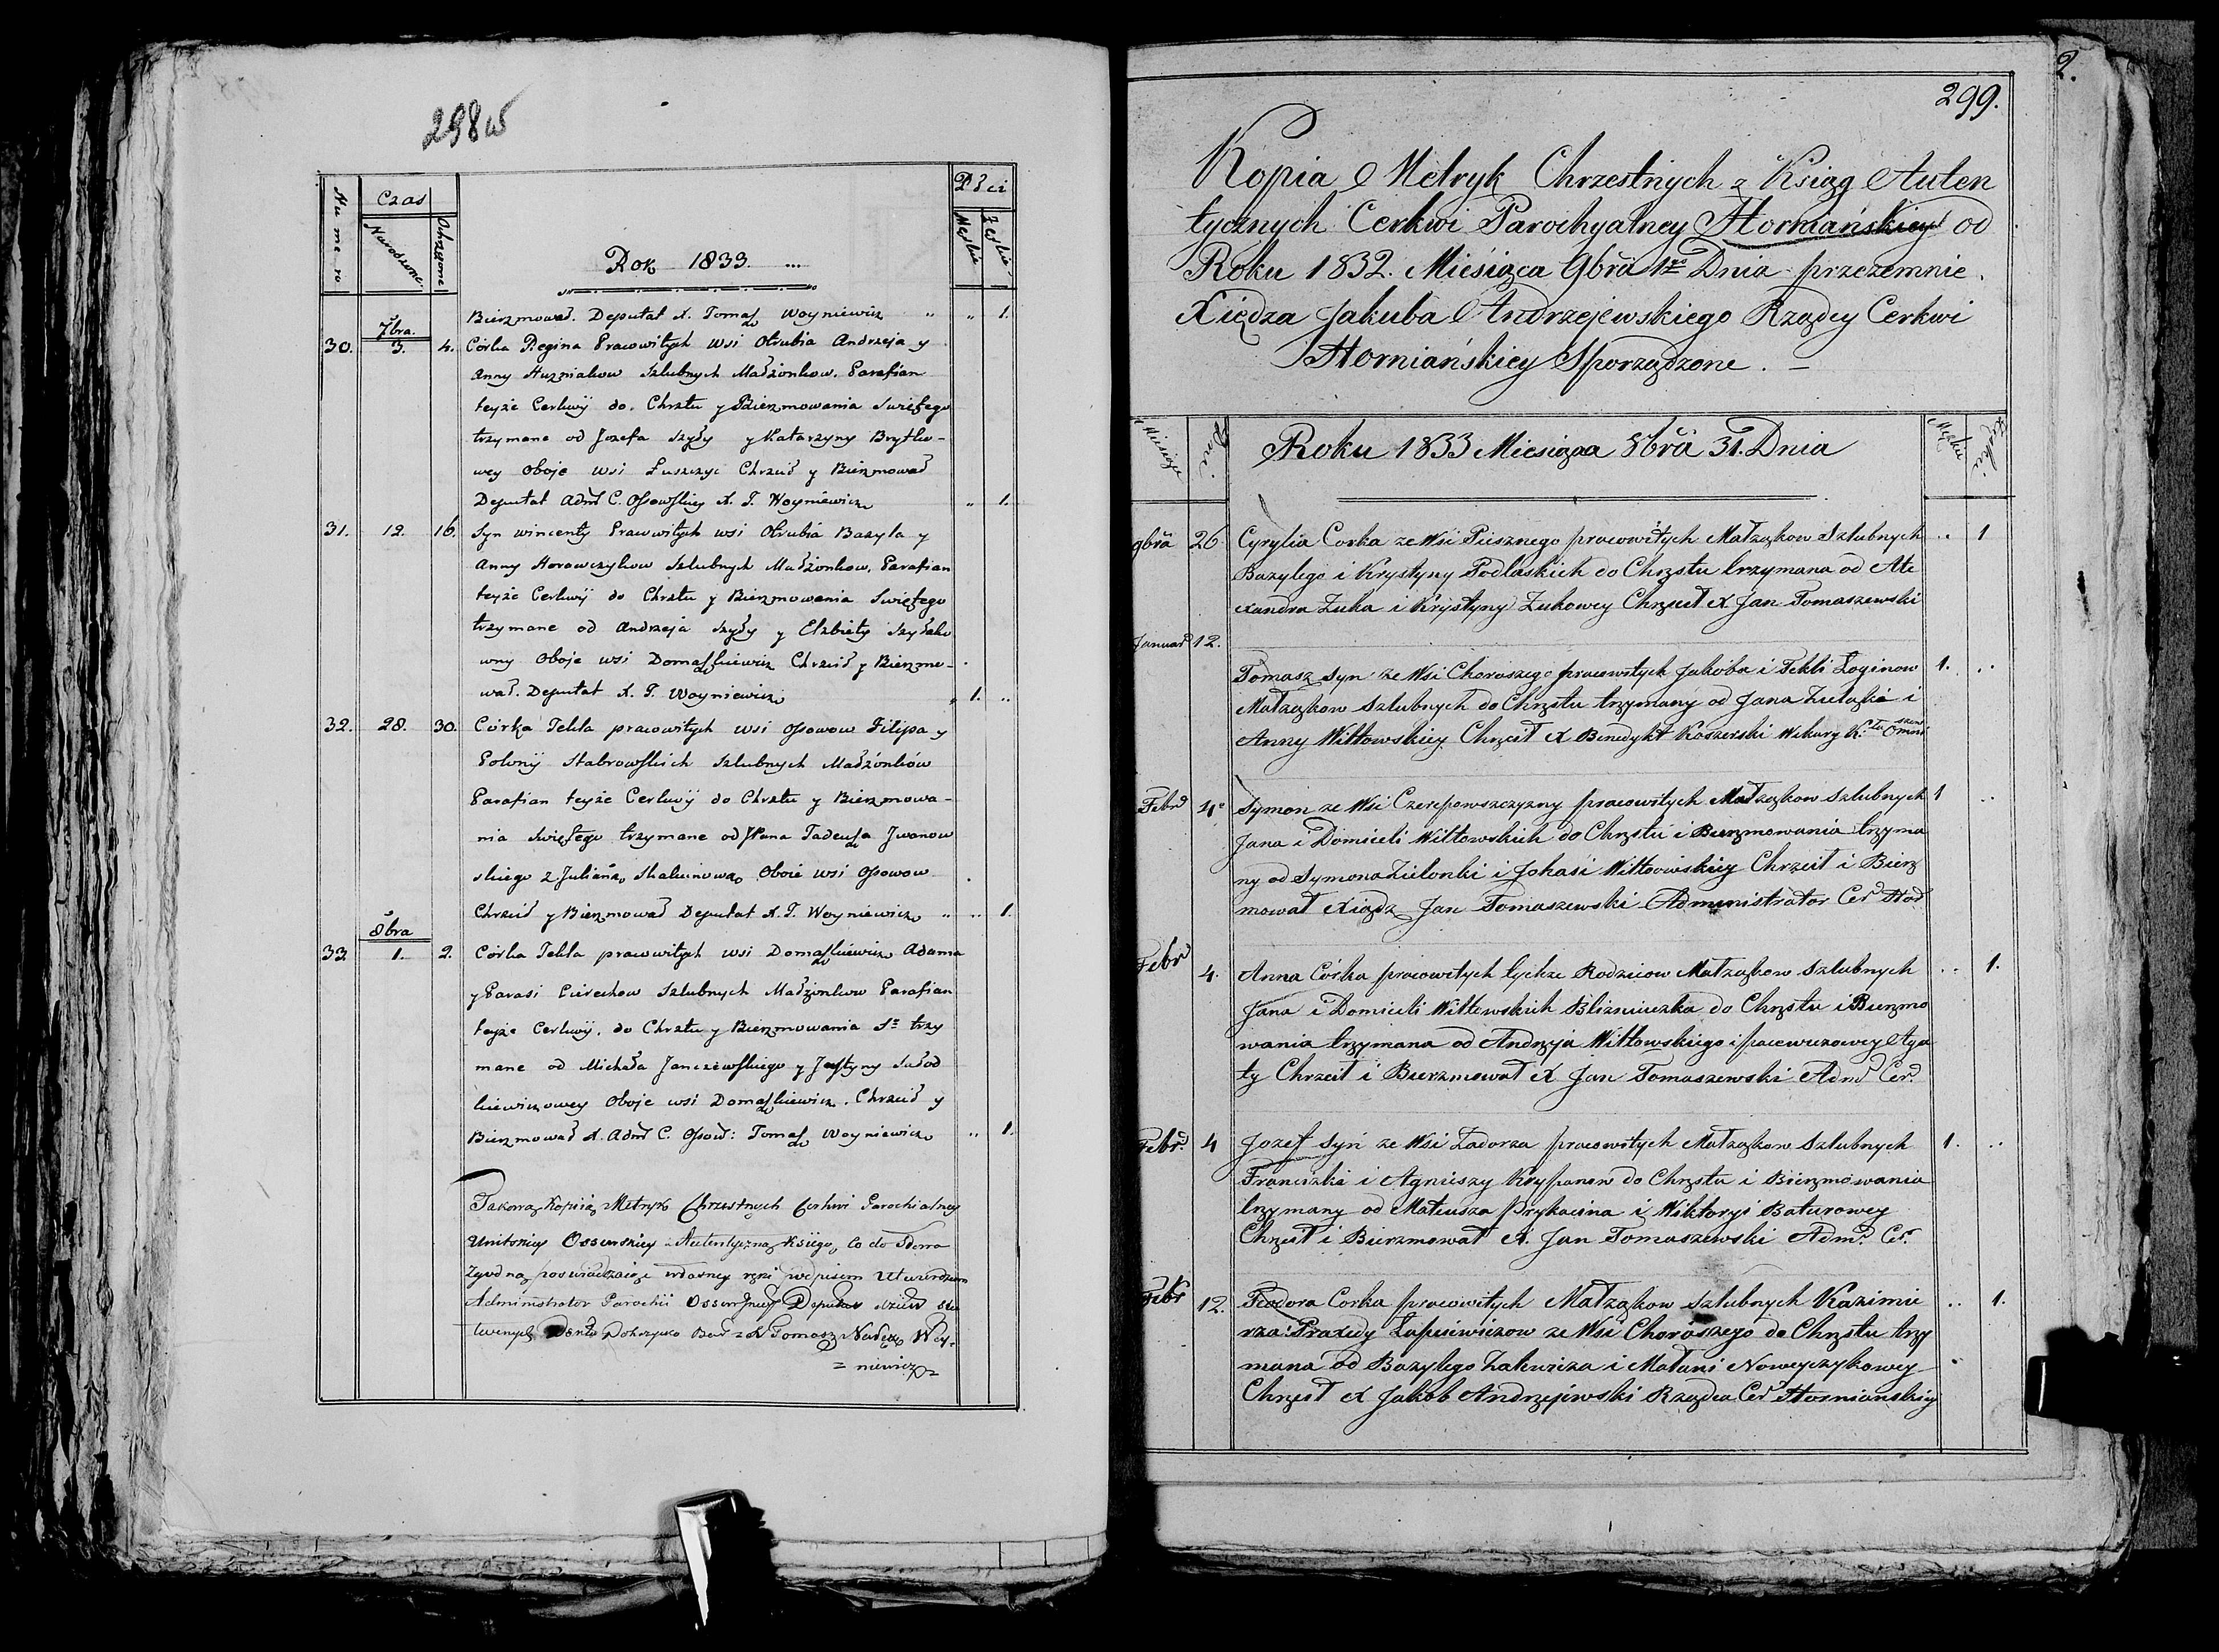 298
Numero
Czas
Narodzone
Ochrzczone
Rok 1833. ...
Płci
Męskie
Żeńskie
Bierzmował. Deputat X. Tomasz Woyniewicz " " 1.
7bra.
30. 3. 4. Córka Regina Pracowitych wsi Otrubia Andrzeja y
Anny Huzniakow szlubnych Małżonkow. Parafian
teyże Cerkwij do Chrztu y Bierzmowania Swiętego
trzymane od Jozefa Szydy y Katarzyny Brytko-
wey oboje wsi Łuszczyc Chrzcił y Bierzmował
Deputat Admr C. Ossowskiey X. T. Woyniewicz " 1.
31. 12. 16. Syn wincenty Pracowitych wsi Otrubia Bazyla y
Anny Horowczykow szlubnych Małżonkow, Parafian
teyże Cerkwij do Chrztu y Bierzmowania Swiętego
trzymane od Andrzeja Szydy y Elzbiety
wny oboje wsi Domaszkiewicz Chrzcił y Bierzmo-
wał. Deputat X. T. Woyniewicz " 1. "
32. 28. 30. Córka Tekla pracowitych wsi Ossowow Filipa y
Polonij Stabrowskich szlubnych Małżonków
Parafian teyże Cerkwij do Chrztu y Bierzmowa-
nia Swiętego trzymane od JPana Tadeusza Jwanow
skiego z Julianą Skalninową oboie wsi Ossowow
Chrzcił y Bierzmował Deputat X. T. Woyniewicz " " 1.
8bra
33 1. 2. Córka Tekla pracowitych wsi Domaszkiewicz Adama
y Parasi Cierechow szlubnych Małżonkow Parafian
teyże Cerkwij. do Chrztu y Bierzmowania Sgo trzy
mane od Michała Janczewskiego y Justyny Sołod
kiewiczowey oboje wsi Domaszkiewicz. Chrzcił y
Bierzmował X. Adm C. Ossow: Tomasz Woyniewicz " 1.
Takową Kopią Metryk Chrzestnych Cerkwi Parochialney
Unitskiey Ossowskiey z Autentyczną Księgą Co do Słowa
Zgodną poswiadczaiąc własney ręki podpisem Utwierdzam
Administrator Parochii Ossowskiey Deputat
Tomasz Woy-
= niewicz
2.
299.
Kopia Metryk Chrzestnych z Ksiąg Auten
tycznych Cerkwi Parochyalney Horniańskiey od
Roku 1832. Miesiąca 9bra 1go Dnia przezemnie
Xiędza Jakuba Andrzejewskiego Rządcy Cerkwi
Horniańskiey Sporządzone. –
Miesiące
Dni
Roku 1833 Miesiąca 8bra 31. Dnia
Męskie
Żenskie
9bra 26 Cyrylia Corka ze Wsi Piesznego pracowitych Małżąkow Szlubnych .. 1
Bazylego i Krystyny Podlaskich do Chrzstu trzymana od Ale
xandra Żuka i Krystyny Żukowey Chrzcił X Jan Tomaszewski
Januar 12.
Tomasz Syn ze Wsi Choroszego pracowitych Jakoba i Tekli Łoginow 1. ..
Małżąkow Szlubnych do Chrzstu trzymany od Jana i
Anny Witkowskiey Chrzcił X Benedykt Koszerski Wikary
Febr 4o Symon ze Wsi Czerepowszczyzny pracowitych Małżąkow Szlubnych 1 ..
Jana i Domiceli Witkowskich do Chrzstu i Bierzmowania trzyma
ny od Symona Zielonki i Johasi Witkowskiey Chrzcił i Bierz
mował Xiądz Jan Tomaszewski Administrator Cer Hor
Febr 4. Anna Córka pracowitych tychże Rodzicow Małżąkow Szlubnych .. 1.
Jana i Domiceli Witkowskich Blizniuczka do Chrzstu i Bierzmo
wania trzymana od Andrzeja Witkowskiego i Aga
ty Chrzcił i Bierzmował X Jan Tomaszewski Adm Cer.
Febr. 4 Jozef Syn ze Wsi Zadorza pracowitych Małżąkow Szlubnych 1. ..
Franciszka i Agnieszy Krypanow do Chrzstu i Bierzmowania
trzymany od Mateusza Prykacina i Wiktoryi Baturowey
Chrzcił i Bierzmował X. Jan Tomaszewski Adm. Cer.
Febr 12. Feodora Corka pracowitych Małżąkow szlubnych Kazimie .. 1.
rza i Praxedy Łapiciwiczow ze Wsi Choroszego do Chrzstu trzy
mana od Bazylego Zalewicza i Małani Noweyczykowey
Chrzcił X Jakob Andrzejewski Rządca Cer Hornianskiey